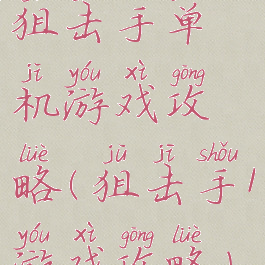 狙击手单
jī yóu xì gōng
机游戏攻
lüè jū jī shǒu
略(狙击手/
yóu xì gōng lüè
游戏攻略)